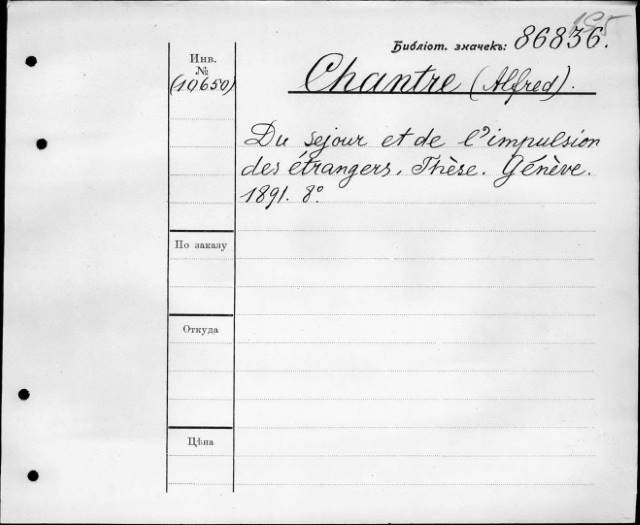 165
Библіот. значекъ: 86836.
Инв.
№
(10650)
Chantre (Alfred).
Du sejour et de l'impulsion
des étrangers. Thèse. Génève.
1891. 8º.
По заказу
Откуда
Цѣна